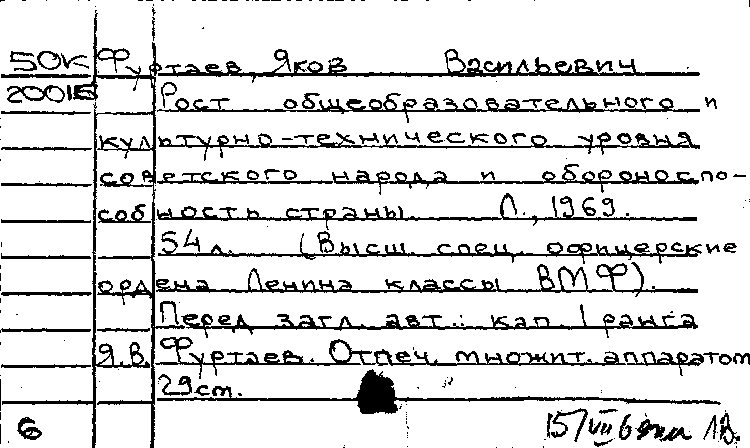 50К Фуртаев, Яков Васильевич
20015 Рост общеобразовательного и
культурно-технического уровня
советского народа и обороноспо-
собность страны. Л., 1969.
54 л. (Высш. спец. офицерские
ордена Ленина классы ВМФ).
Перед загл. авт.: кап. 1 ранга
Я.В. Фуртаев. Отпеч. множит. аппаратом
29 см.
6 15/VII 1В.